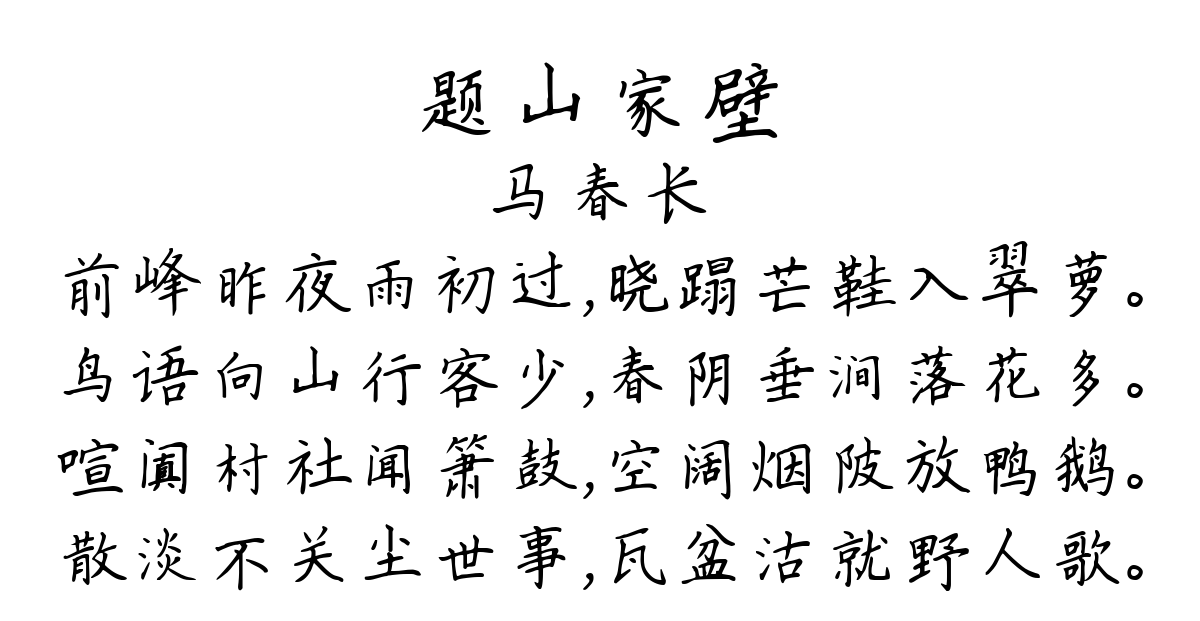 题山家壁
马春长
前峰昨夜雨初过,晓蹋芒鞋入翠萝。
鸟语向山行客少,春阴垂涧落花多。
喧阗村社闻箫鼓,空阔烟陂放鸭鹅。
散淡不关尘世事,瓦盆沽就野人歌。